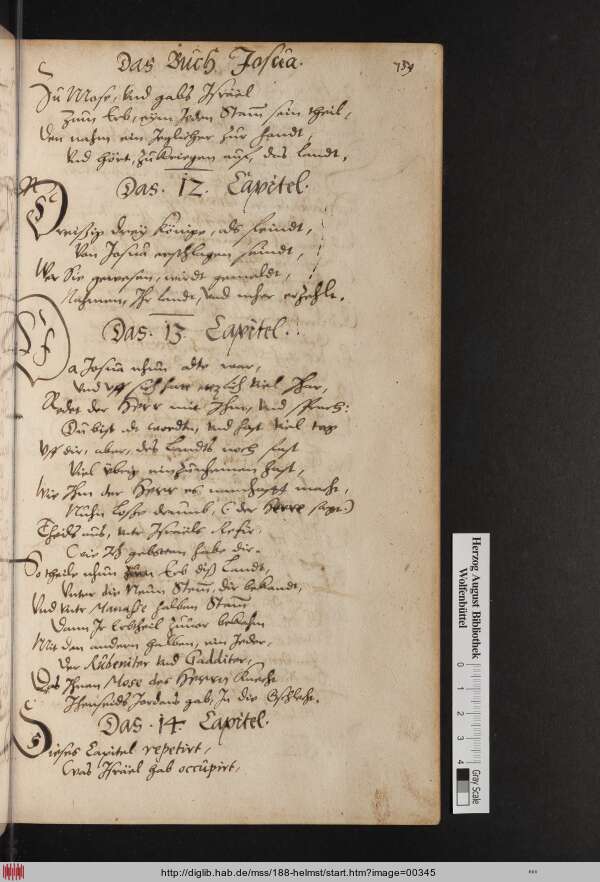 Das Buch Josua.
Zu Mose, Und gabs Israël
Zum Erb, eym Jeden Stam sein theil,
Den nahm ein Jeglicher zur handt,
Und hört, zu Kriegen auf, das landt.
Das. 12. Capitel.
Dreissig drey Könige, als feindt,
Von Josua erschlagen seindt,
Wer Sie gewesen, wirdt gemeldt,
Nahmen, Ihr landt, Und erzehlt.
Das. 13. Capitel.
Da Josua nhun alt war,
Und uff sich hatt viel Jhar,
Redet der Herr mit Ihm, Und sprach:
Du bist alt worden, Und hast viel tag
Uff dir, aber, des Landts noch fast
Viel übrig einzunhemen hast,
Wie Ihm der Herr es nhamhafft macht,
(der Herr sagt:)
Theils aus, unter Israëls
Wie Ich gebotten habe dir.
So theile nhun zum Erb diß Landt,
Unter die Neun Stem, dir bekandt,
Und unter Manasse halben Stam
Dann Ir Erbtheil zuvor bekahm
Mit dem andern halben, ein Jeder,
Der Rubeniter Und Gadditer,
Es Ihnen Mose des Herrn Knecht
Jhenseids Jordans gab, In die
Das. 14. Capitel.
Dieses Capitel repetirt,
Was Israël hab occupirt,
Herzog August Bibliothek
Wolfenbüttel
0 1 2 3 4
Gray Scale
http://diglib.hab.de/mss/188-helmst/start.htm?image=00345